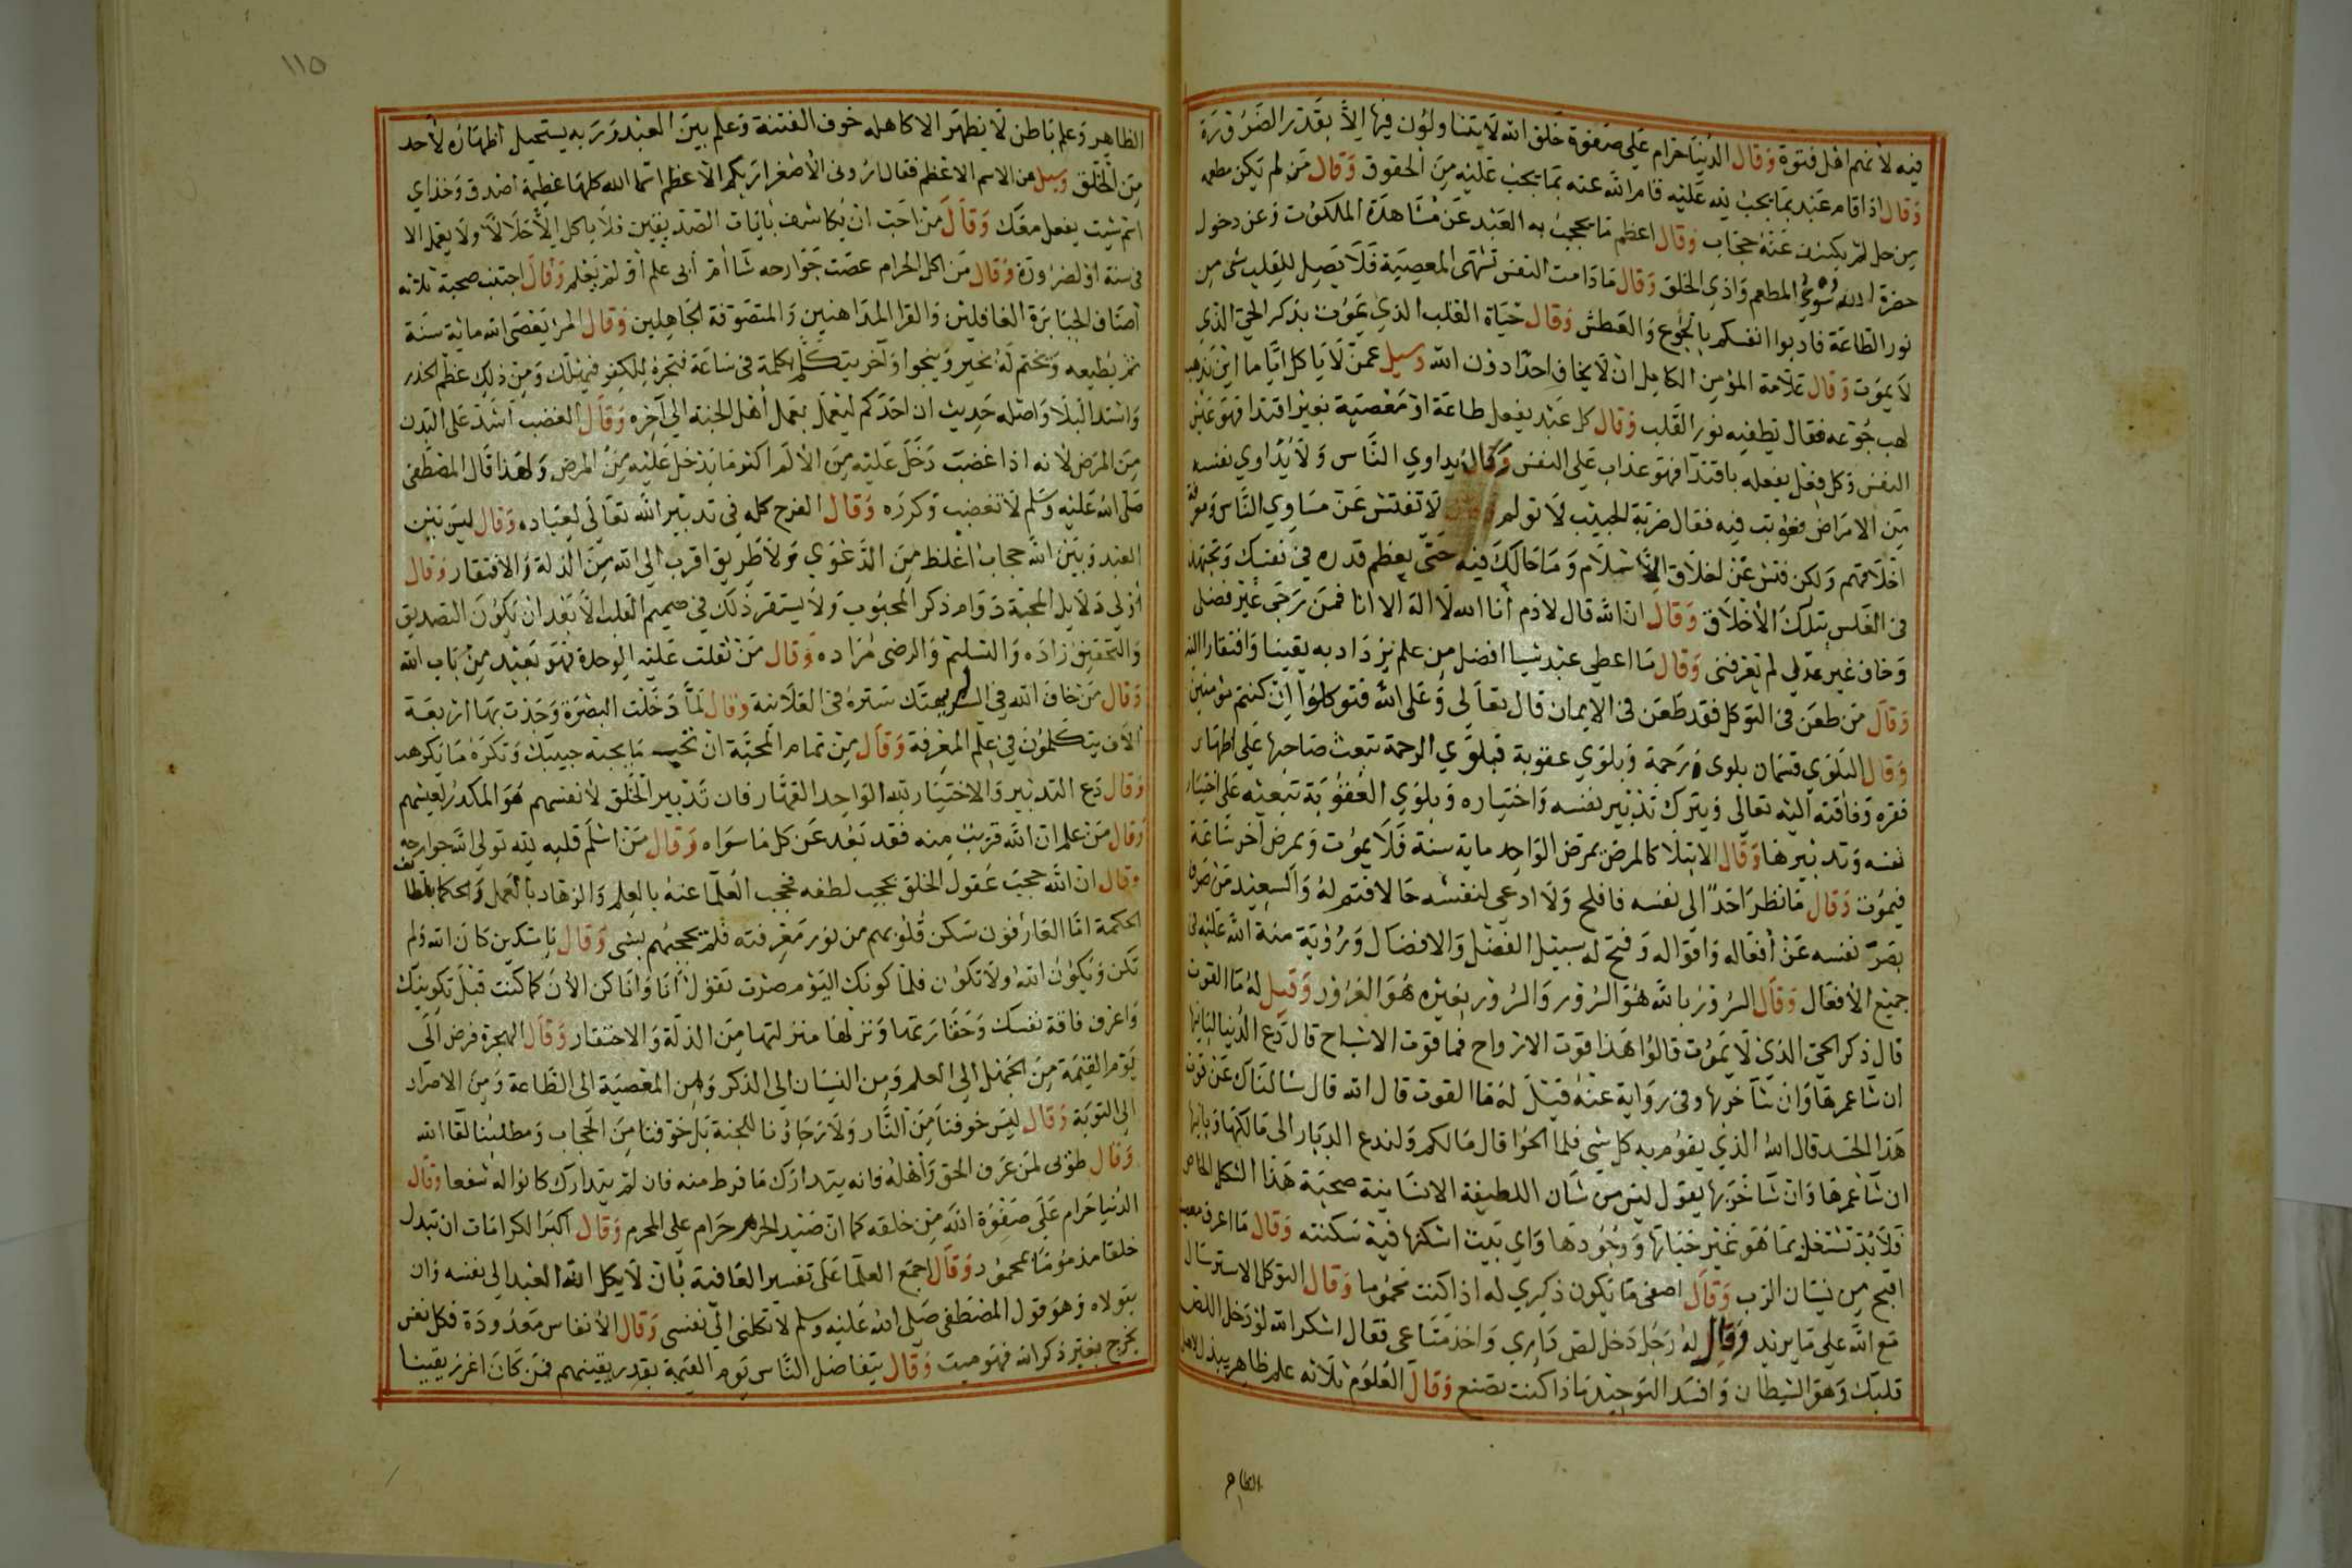 فيه لانهم اهل فتوة وقال الدنيا حرام على صفوة خلق الله لا يتناولون فيها الا بقدر الضرورة
وقال اذا قام عبد بما يجب لله عليه قام الله عنه بما يجب عليه من الحقوق وقال من لم يكن مطعمه
من حل لم يكشف عنه حجاب وقال اعظم ما يحجب به العبد عن مشاهدة الملكوت وعن دخول
حضرة الله سوء المطعم واذي الخلق وقال ما دامت النفس تشتهى المعصية فلا يصل للقلب شى من
نور الطاعة فادبوا انفسكم بالجوع والعطش وقال حياة القلب الذي يموت بذكر الحي الذي
لا يموت وقال علامة المؤمن الكامل ان لا يخاف احدا دون الله وسيل عمن لا ياكل اياما اين يذهب
لهب جوعه فقال يطفيه نور القلب وقال كل عبد يفعل طاعة او معصية بغير اقتدا فهو عيش
النفس وكل فعل يفعله باقتدا فهو عذاب على النفس وكان يداوي الناس ولا يداوي نفسه
من الامراض فعوتب فيه فقال ضربة الحبيب لا تولم وقال لا تفتش عن مساوي الناس
اخلاقهم ولكن فتش عن اخلاق الاسلام وما حالك فيه حتى يعظم قدره في نفسك وتجتهد
في التلبس بتلك الاخلاق وقال ان الله قال لادم أنا الله لا اله الا انا فمن رجى غير فضلى
وخاف غير عدلي لم يعرفنى وقال ما اعطي عبد شيا افضل من علم يزداد به يقينا وافتقارا
وقال من طعن فى التوكل فقد طعن فى الايمان قال تعالى وعلى الله فتوكلوا ان كنتم مؤمنين
وقال البلوي قسمان بلوى رحمة وبلوي عقوبة فبلوي الرحمة تبعث صاحبها على اظهار
فقره وفاقته اليه تعالى ويترك تدبير نفسه واختياره وبلوي العقوبة تبعثه على اختيار
نفسه وتدبيرها وقال الابتلا كالمرض يمرض الواحد ماية سنة فلا يموت ويمرض اخر ساعة
فيموت وقال ما نظر احد الى نفسه فافلح ولا ادعى لنفسه حالا فتم له والسعيد من صرف
بصر نفسه عن أفعاله واقواله وفتح له سبيل الفضل والافضال ورؤية منة الله عليه فى
جميع الافعال وقال السرور بالله هو السرور والسرور بغيره هو الغرور وقيل له ما القوت
قال ذكر الحي الذي لا يموت قالوا هذا قوت الارواح فما قوت الاشباح قال دع الدنيا لبانيها
ان شا عمرها وان شا خربها وفى رواية عنه قيل له ما القوت قال الله قال سالناك عن قوت
هذا الجسد قال الله الذي يقوم به كل شى فلما الحوا قال مالكم ولندع الديار الى مالكها وبانيها
ان شا عمرها وان شا خربها يقول ليس من شان اللطيفة الانسانية صحبة هذا الشكل الخاص
فلا بد تشتغل بما هو غير حياتها ووجودها واي بيت اسكنها فيه سكنته وقال ما اعرف معصية
اقبح من نسيان الرب وقال اصفى ما يكون ذكري له اذا كنت محموما وقال التوكل الاسترسال
مع الله على ما يريد وقال له رجل دخل لص داري واخذ متاعى فقال اشكر الله لو دخل اللص
قلبك وهو الشيطان وافسد التوحيد ماذا كنت تصنع وقال العلوم ثلاثه علم ظاهر يبذل لاهل
الظاهر
١١٥
الظاهر وعلم باطن لا يظهر الا لاهله خوف الفتنة وعلم بين العبد وربه يستحيل اظهاره لاحد
من الخلق وسيل عن الاسم الاعظم فقال ارونى الاصغر اريكم الاعظم اسما الله كلها عظيمة اصدق وخذ اي
اسم شيت يفعل معك وقال من احب ان يكاشف بايات الصديقين فلا ياكل الا حلالا ولا يعمل الا
فى سنة او لضرورة وقال من اكل الحرام عصت جوارحه شا أم أبى علم أو لم يعلم وقال اجتنب صحبة ثلاثه
أصناف الجبابرة الغافلين والقرا المداهنين والمتصوفة الجاهلين وقال المرا يعصى الله ماية سنة
ثم يطيعه ويختم له بخير وينجوا وآخر يتكلم بكلمة فى ساعة فتجره للكفر فيهلك ومن ذلك عظم الحذر
واشتد البلا واصله حديث ان احدكم ليعمل بعمل أهل الجنة الى آخره وقال الغضب أشد على البدن
من المرض لانه اذا غضب دخل عليه من الالم اكثر ما يدخل عليه من المرض ولهذا قال المصطفى
صلى الله عليه وسلم لا تغضب وكرره وقال الفرح كله في تدبير الله تعالى لعباده وقال ليس بين
العبد وبين الله حجاب اغلظ من الدعوي ولا طريق اقرب الى الله من الذلة والافتقار وقال
اولى دلايل المحبة دوام ذكر المحبوب ولا يستقر ذلك في صميم القلب الا بعد ان يكون التصديق
والتحقيق زاده والتسليم والرضى مراده وقال من ثقلت عليه الوحدة فهو بعيد من باب الله
وقال من خاف الله في السر لم يهتك ستره فى العلانية وقال لما دخلت البصرة وجدت بها اربعة
الاف يتكلمون في علم المعرفة وقال من تمام المحبة ان تحب ما يحبه حبيبك وتكره ما يكرهه
وقال دع التدبير والاختيار لله الواحد القهار فان تدبير الخلق لانفسهم هو المكدر لعيشهم
وقال من علم ان الله قريب منه فقد بعد عن كل ما سواه وقال من اسلم قلبه لله تولى الله جوارحه
وقال ان الله حجب عقول الخلق بحجب لطفه فحجب العلما عنه بالعلم والزهاد بالعمل والحكما بلطائف
الحكمة اما العارفون سكن قلوبهم من نور معرفته فلم يحجبهم بشى وقال يا مسكين كان الله ولم
تكن ويكون الله ولا تكون فلما كونك اليوم صرت تقول أنا وانا كن الان كما كنت قبل تكوينك
واعرف فاقة نفسك وحقارتها ونزلها منزلتها من الذلة والاحتقار وقال الهجرة فرض الى
يوم القيمة من الجهل الى العلم ومن النسيان الى الذكر ومن المعصية الى الطاعة ومن الاصرار
الى التوبة وقال ليس خوفنا من النار ولا رجاؤنا للجنة بل خوفنا من الحجاب ومطلبنا لقا الله
وقال طوبى لمن عرف الحق وأهله فانه يتدارك ما فرط منه فان لم يتدارك كانوا له شفعا وقال
الدنيا حرام على صفوة الله من خلقه كما ان صيد الحرم حرام على المحرم وقال أكبر الكرامات ان تبدل
خلقا مذموما بمحمود وقال اجمع العلما على تفسير العافية بان لا يكل الله العبد الى نفسه وان
يتولاه وهو قول المصطفى صلى الله عليه وسلم لا تكلنى الى نفسى وقال الأنفاس معدودة فكل نفس
يخرج بغير ذكر الله فهو ميت وقال يتفاضل الناس يوم القيمة بقدر يقينهم فمن كان اغزر يقينا